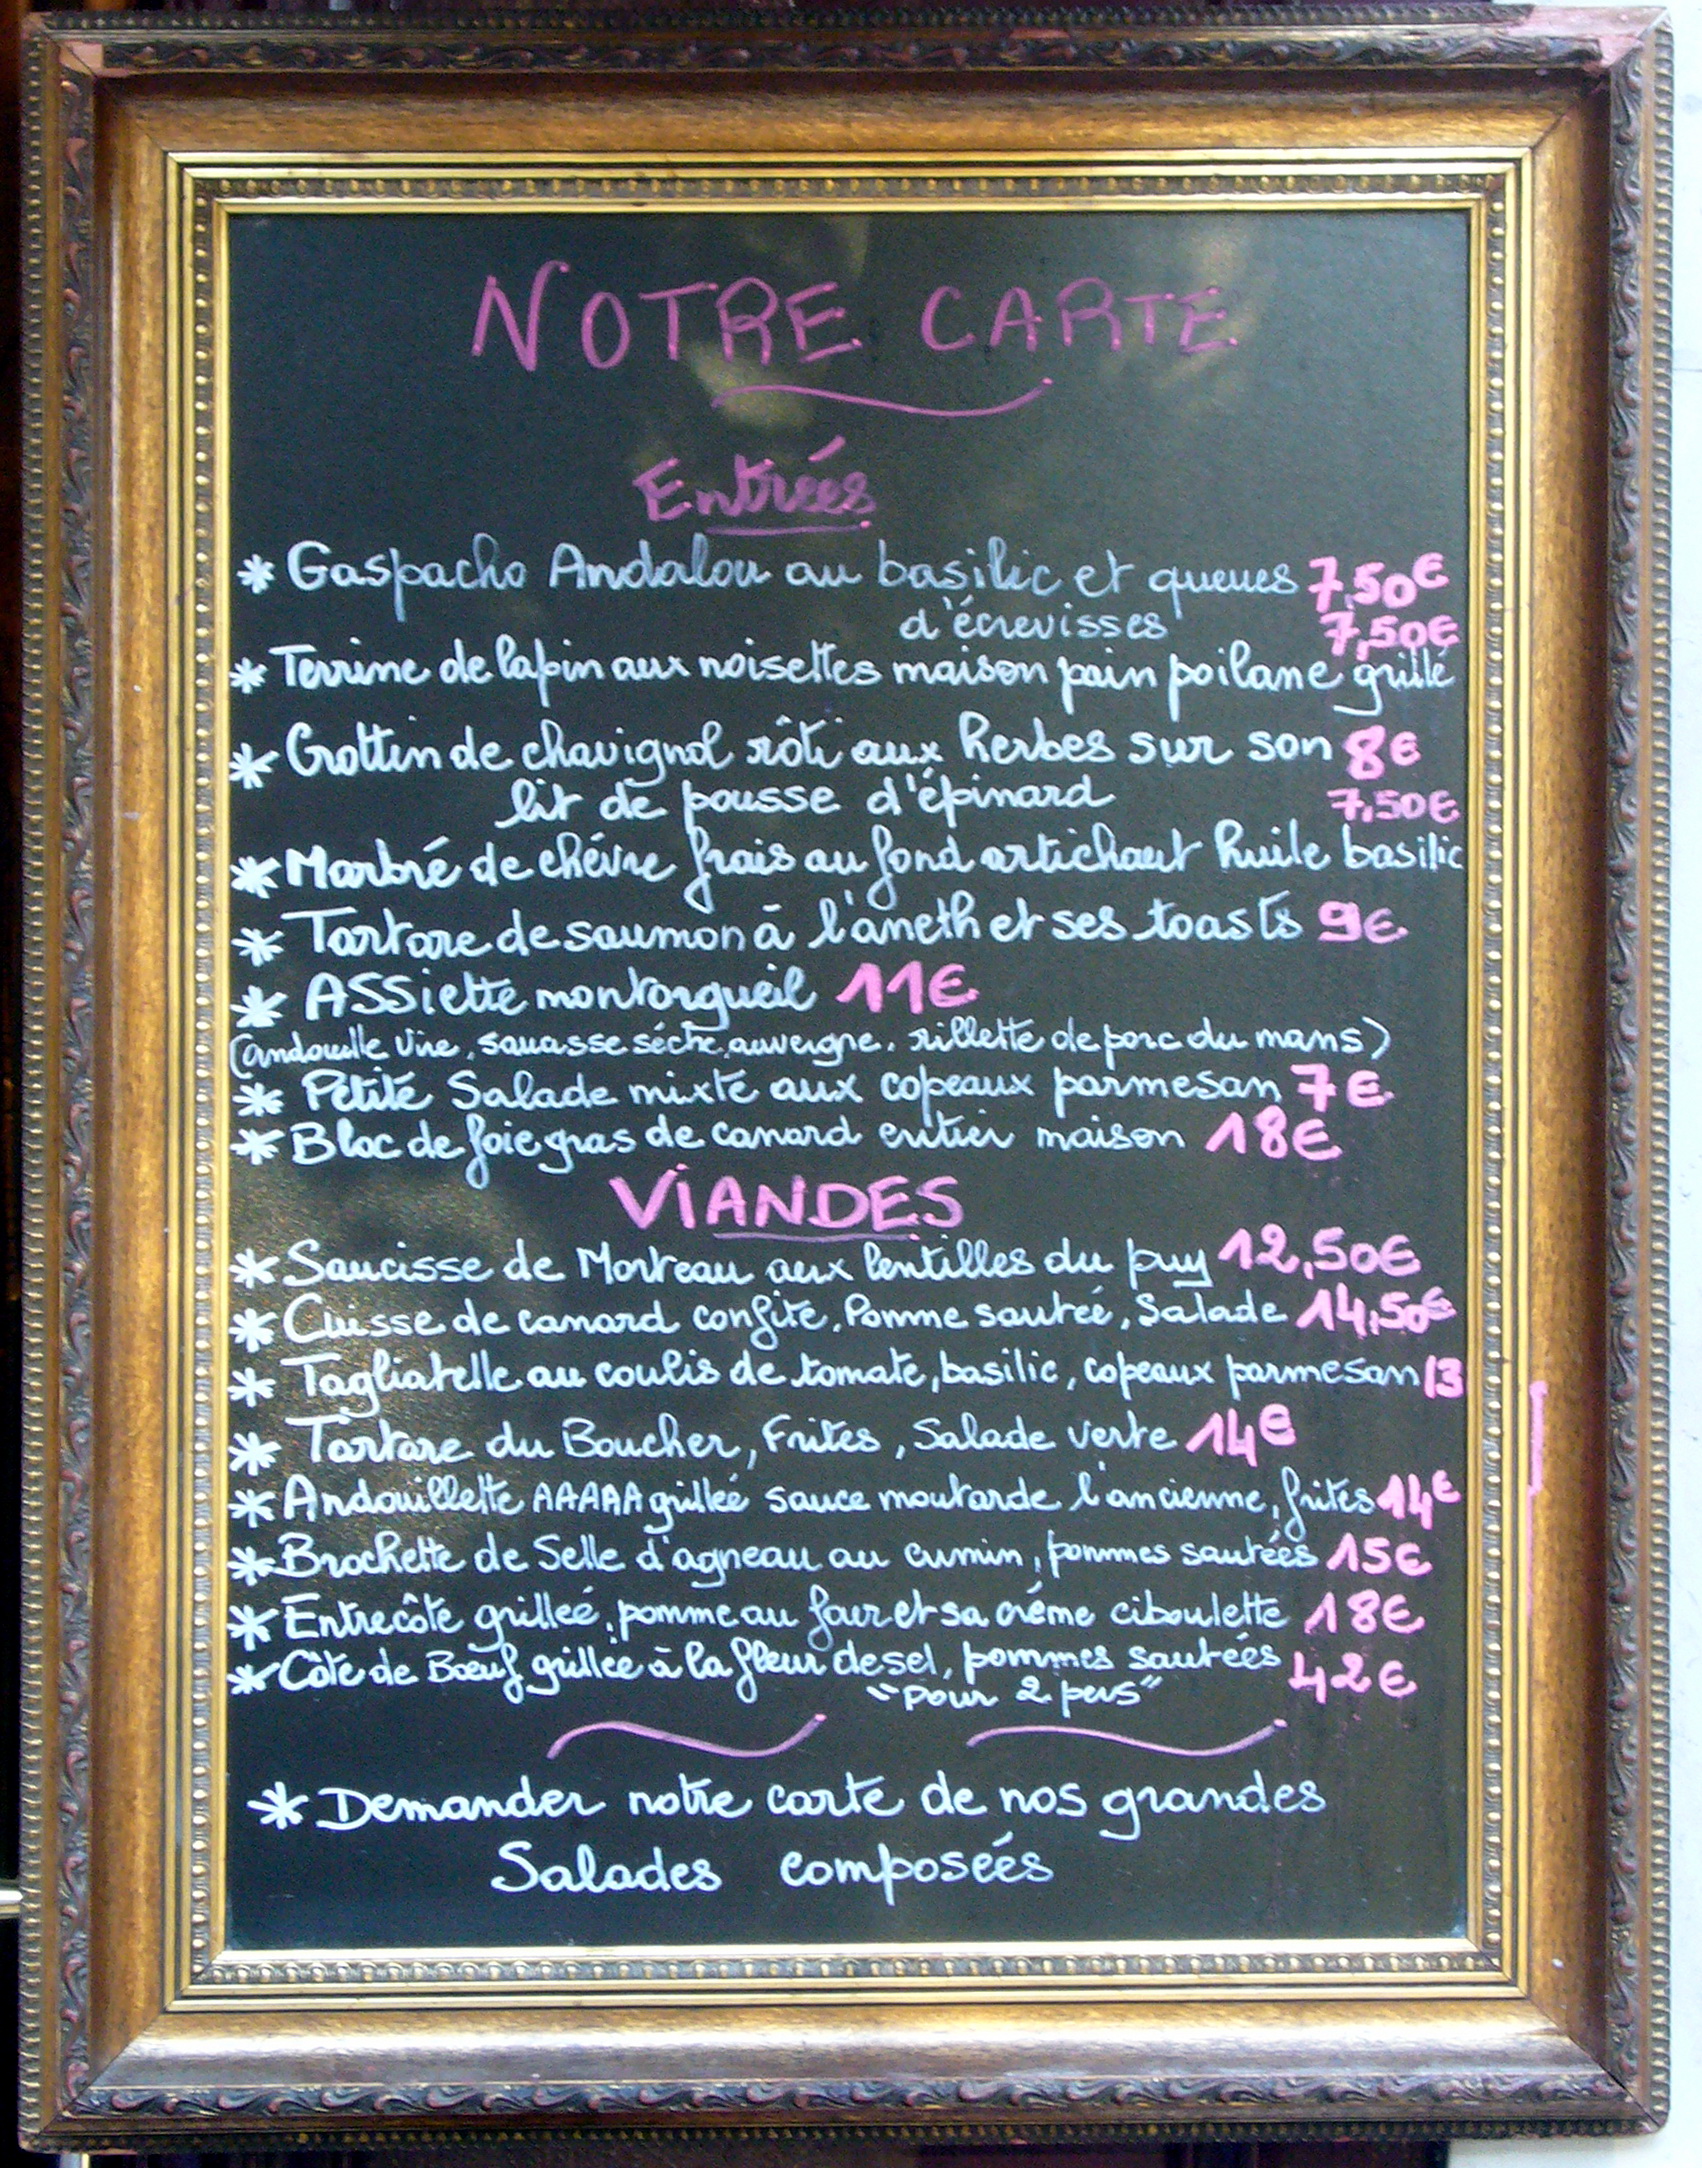 NOTRE CARTE
Entrées
* Gaspacho Andalou au basilic et queues 7,50€
d'écrevisses 7,50€
* Terrine de lapin aux noisettes maison pain poilane grillé
* Crottin de chavignol rôti aux herbes sur son 8€
lit de pousse d'épinard 7,50€
* Marbré de chévre frais au fond artichaut huile basilic
* Tartare de saumon à l'aneth et ses toasts 9€
* ASSiette montorgueil 11€
(andouille Vire, saucasse séche, auvergne, rillette de porc du mans)
* Petite Salade mixte aux copeaux parmesan 7€
* Bloc de foie gras de canard entier maison 18€
ViANDES
* Saucisse de Morteau aux lentilles du puy 12,50€
* Cuisse de canard confite, Pomme sauteé, Salade 14,50€
* Tagliatelle au coulis de tomate, basilic, copeaux parmesan 13
* Tartare du Boucher, Frites, Salade verte 14€
* Andouillette AAAAA grilleé sauce moutarde l'ancienne, frites 14€
* Brochette de Selle d'agneau au cumin, pommes sautées 15€
* Entrecôte grilleé, pomme au four et sa créme ciboulette 18€
* Côte de Bœuf grillée à la fleur de sel, pommes sautées 42€
"pour 2 pers"
* Demander notre carte de nos grandes
Salades composées